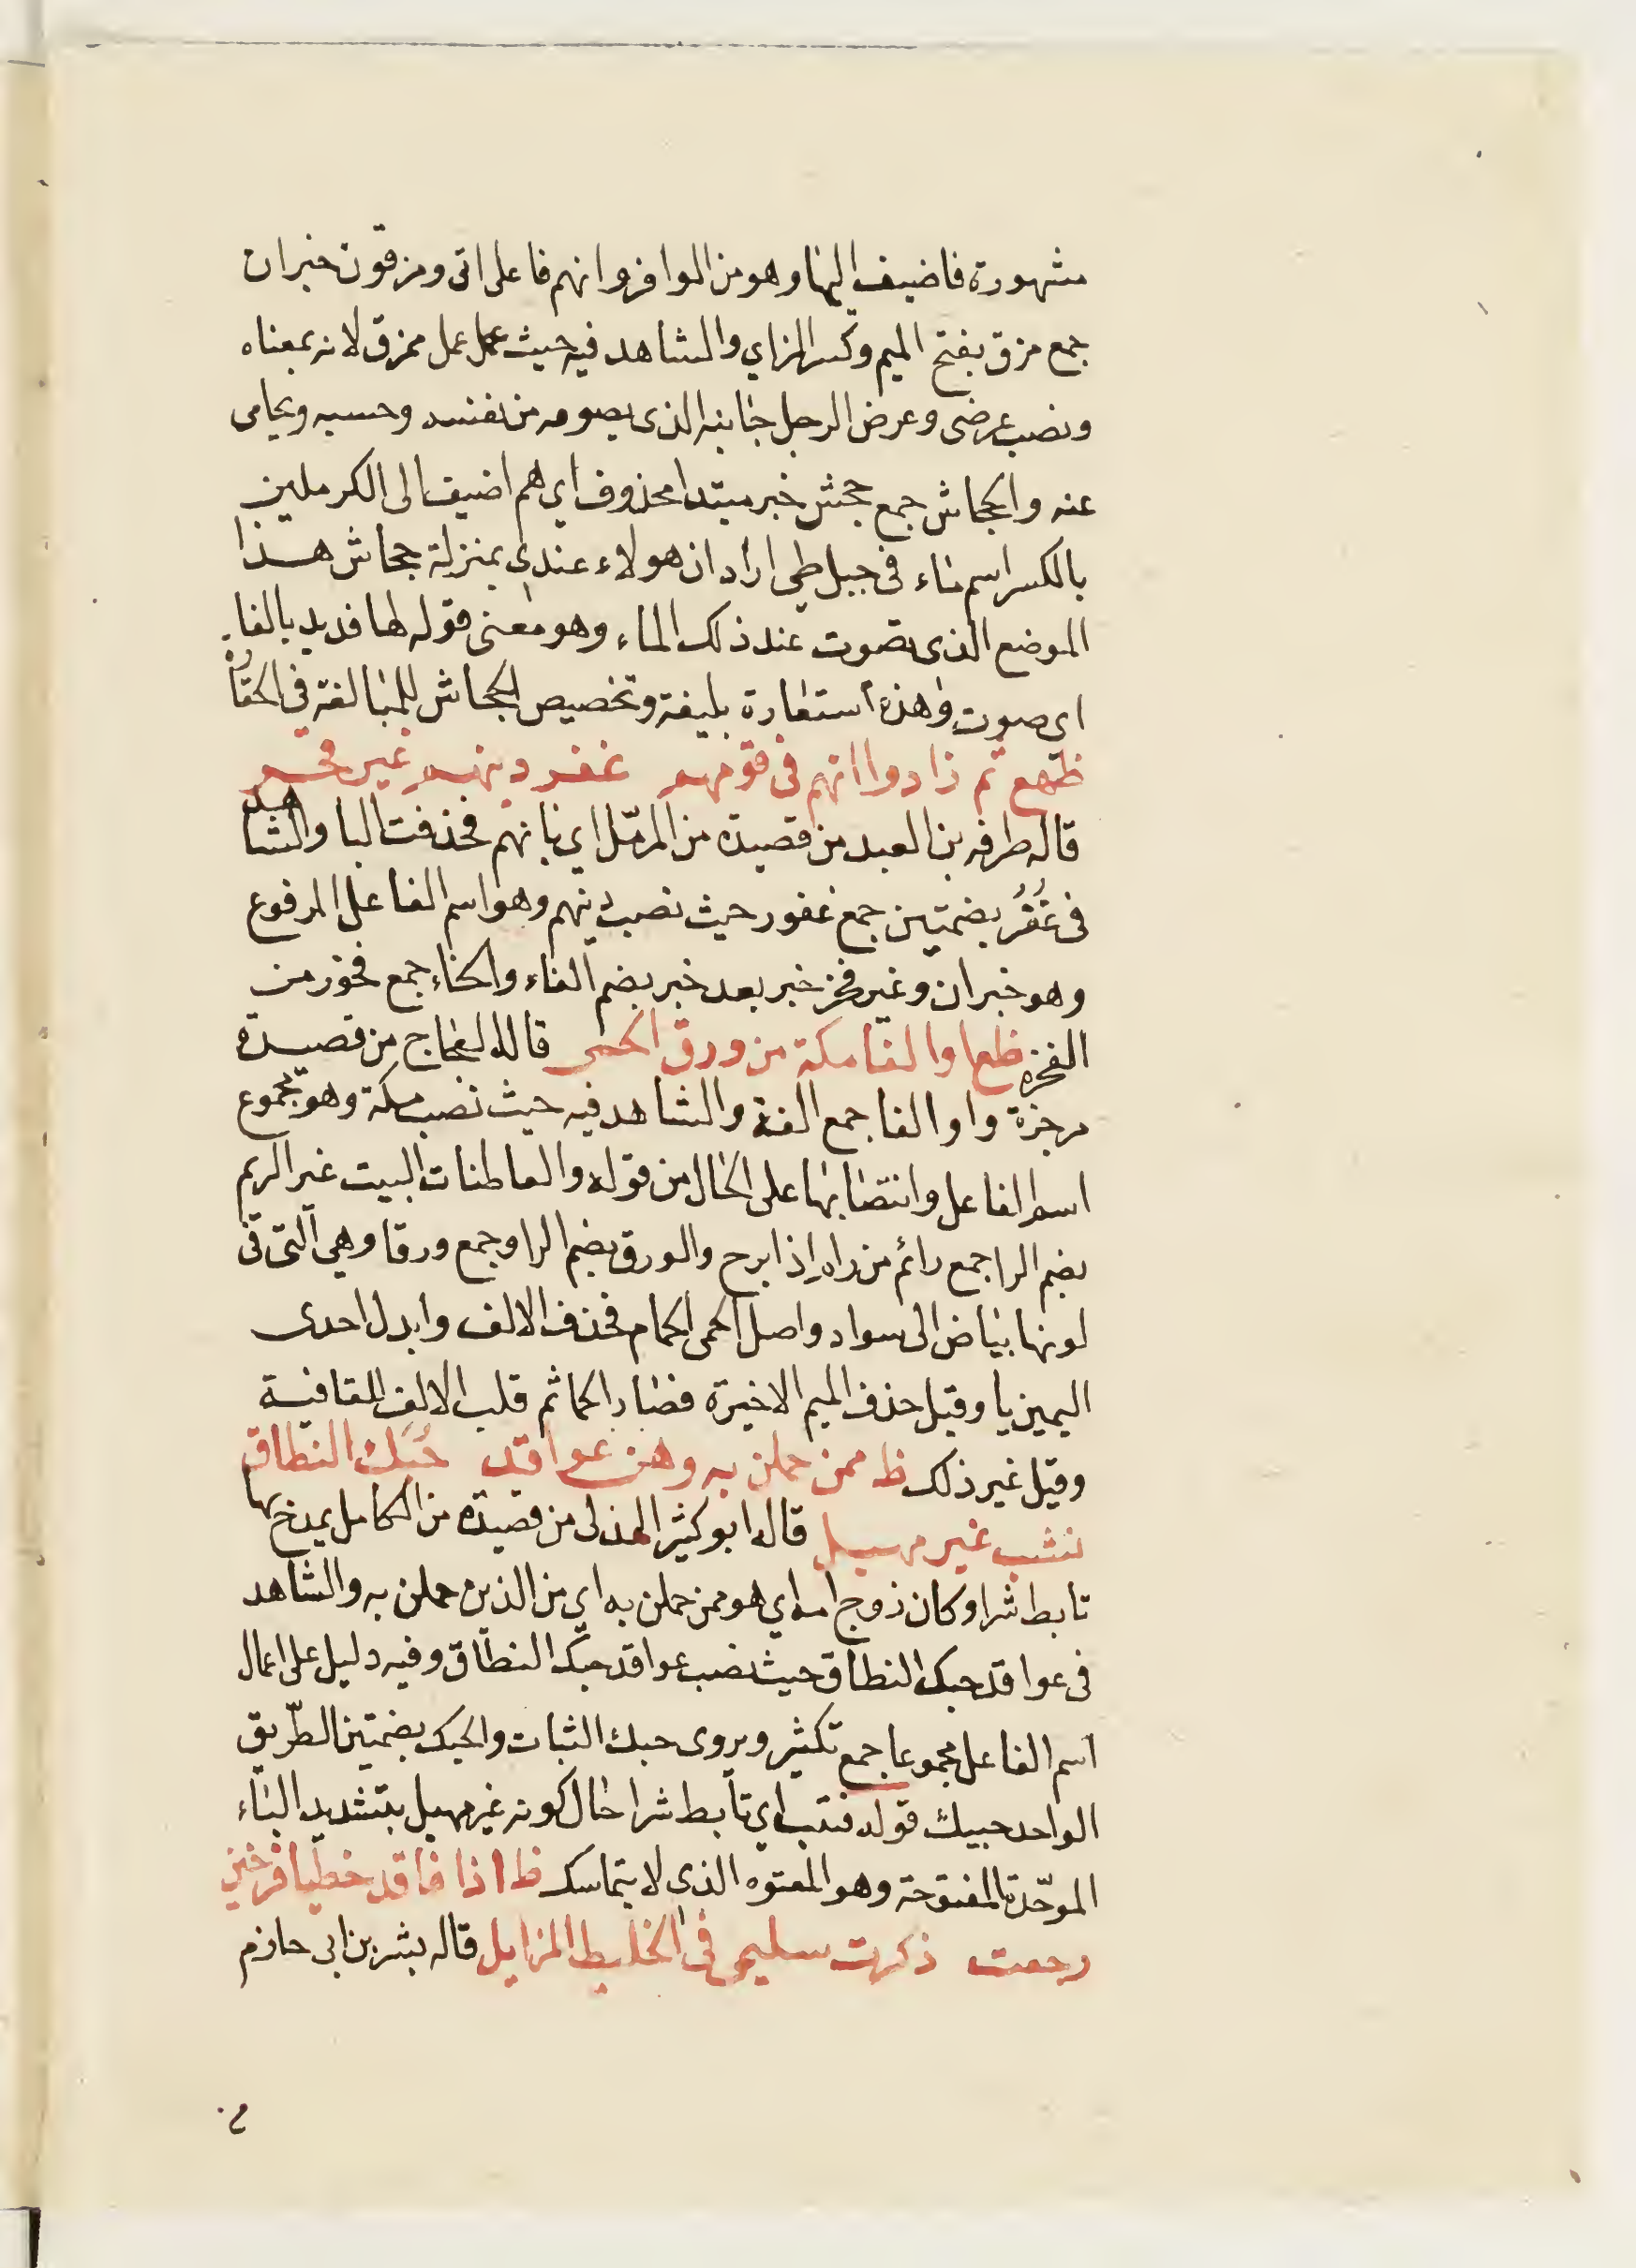 مشهورة فاضيف اليها وهو من الوافر وانهم فاعل اتى ومزقون خبر ان
جمع مزق بفتح الميم وكسر الزاي والشاهد فيه حيث عمل عمل ممزق لانه بمعناه
ونصب عرضى وعرض الرجل جانبه الذى يصونه من نفسه وحسبه ويحامى
عنه والجحاش جمع جحش خبر مبتدا محذوف اي هم اضيف الى الكرملين
بالكسر اسم ماء فى جبل طى اراد ان هولاء عندي بمنزلة جحاش هذا
الموضع الذى تصوت عند ذلك الماء وهو معنى قوله لها فديد بالفاء
اى صوت وهذه استعارة بليغة وتخصيص الجحاش للمبالغة فى الحقارة
ظهع ثم زادوا انهم فى قومهم غفر ذنبهم غير فخر
قاله طرفه بن العبد من قصيدة من الرمل اي بانهم فحذفت البا والشاهد
فى غُفُر بضمتين جمع غفور حيث نصب ذنبهم وهو اسم الفاعل المرفوع
وهو خبر ان وغير فخر خبر بعد خبر بضم الفاء والخاء جمع فخور من
الفخر ظع اوالفا مكة من ورق الحمى قاله العجاج من قصيدة
مرجزة واوالفا جمع الفة والشاهد فيه حيث نصب مكة وهو مجموع
اسم الفاعل وانتصابها على الحال من قوله والقاطنات البيت غير الريم
بضم الرا جمع رائم من رام اذا برح والورق بضم الواو جمع ورقا وهي التى فى
لونها بياض الى سواد واصل الحمى الحمام فحذف الالف وابدل احدى
الميمين يا وقيل حذف الميم الاخيرة فصار الحما ثم قلب الالف للقافية
وقيل غير ذلك ظ ممن حملن به وهن عواقد حُبُك النطاق
فشب غير مهبل قاله ابو كثير الهذلى من قصيدة من الكامل يمدح بها
تابط شرا وكان زوج امه اي هو ممن حملن به اي من الذين حملن به والشاهد
فى عواقد حبك النطاق حيث نصب عواقد حبك النطاق وفيه دليل على اعمال
اسم الفاعل مجموعا جمع تكثير ويروى حبك الثبات والحبك بضمتين الطريق
الواحد حبيك قوله فشب اي تأبط شرا حال كونه غير مهبل بتشديد الباء
الموحّدة المفتوحة وهو المعتوه الذى لا يتماسك ظ اذا فاقد خطبا فرخين
رجعت ذكرت سليمى فى الخليط المزايل قاله بشر بن ابى حازم